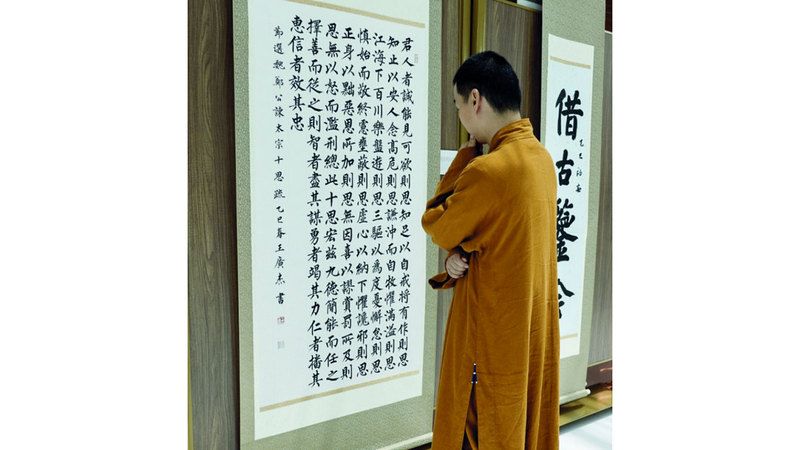 君人者誠能見可欲則思知足以自戒將有作則思
知止以安人念高危則思謙沖而自牧懼滿溢則思
江海下百川樂盤遊則思三驅以為度憂懈怠則思
慎始而敬終慮壅蔽則思虛心以納下懼讒邪則思
正身以黜惡恩所加則思無因喜以謬賞罰所及則
思無以怒而濫刑總此十思宏茲九德簡能而任之
擇善而從之則智者盡其謀勇者竭其力仁者播其
惠信者效其忠
節選魏鄭公諫太宗十思疏乙巳春王廣杰書
借古鑒今
乙巳